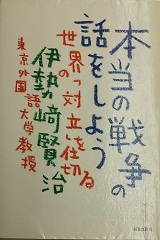 本当の戦争の
話をしよう
世界の「対立」を仕切る
伊勢﨑賢治
東京外国語大学教授